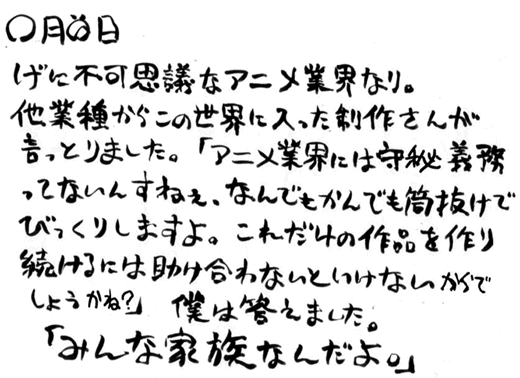 〇月〇日
げに不可思議なアニメ業界なり。
他業種からこの世界に入った制作さんが
言っとりました。「アニメ業界には守秘義務
ってないんすねぇ、なんでもかんでも筒抜けで
びっくりしますよ。これだけの作品を作り
続けるには助け合わないといけないからで
しょうかね?」 僕は答えました。
「みんな家族なんだよ。」